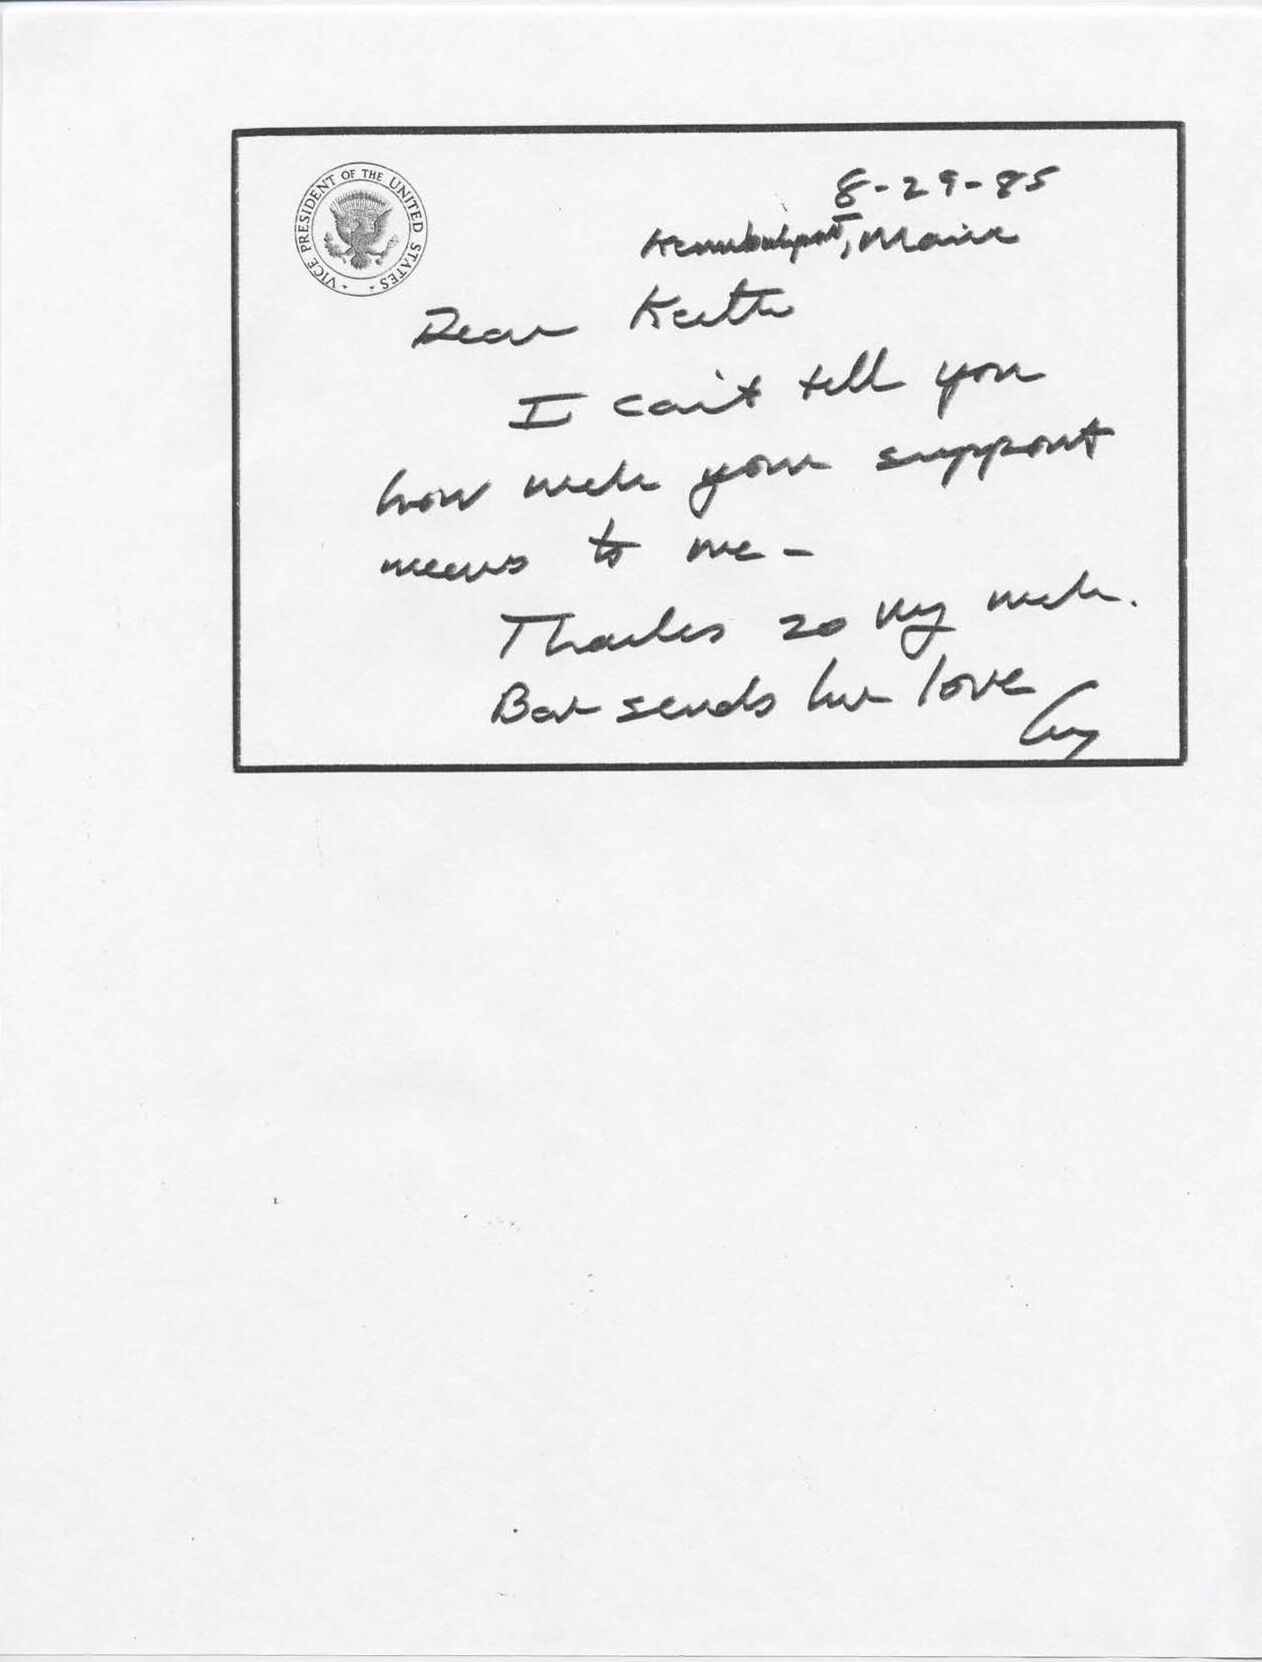 VICE PRESIDENT OF THE UNITED STATES
8-29-85
Kennebunkport, Maine
Dear Keith
I can't tell you
how much your support
means to me -
Thanks so very much.
Bar sends her love